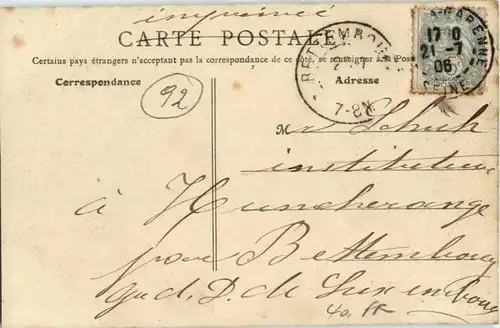 imprimé
CARTE POSTALE
Certains pays étrangers n'acceptant pas la correspondance de ce côté, se renseigner à la Poste
Correspondance
Adresse
92
BETTEMBOURG
7-8N
LA GARENNE
17 0
21-7
06
SEINE
Mr Schuh
instituteur
à Huncherange
pour Bettembourg
Gd. D. de Luxembourg